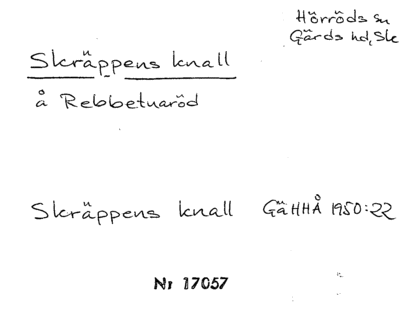 Hörröds sn
Gärds hd, Sk
Skräppens knall
å Rebbetuaröd
Skräppens knall GäHHÅ 1950:22
Nr 17057